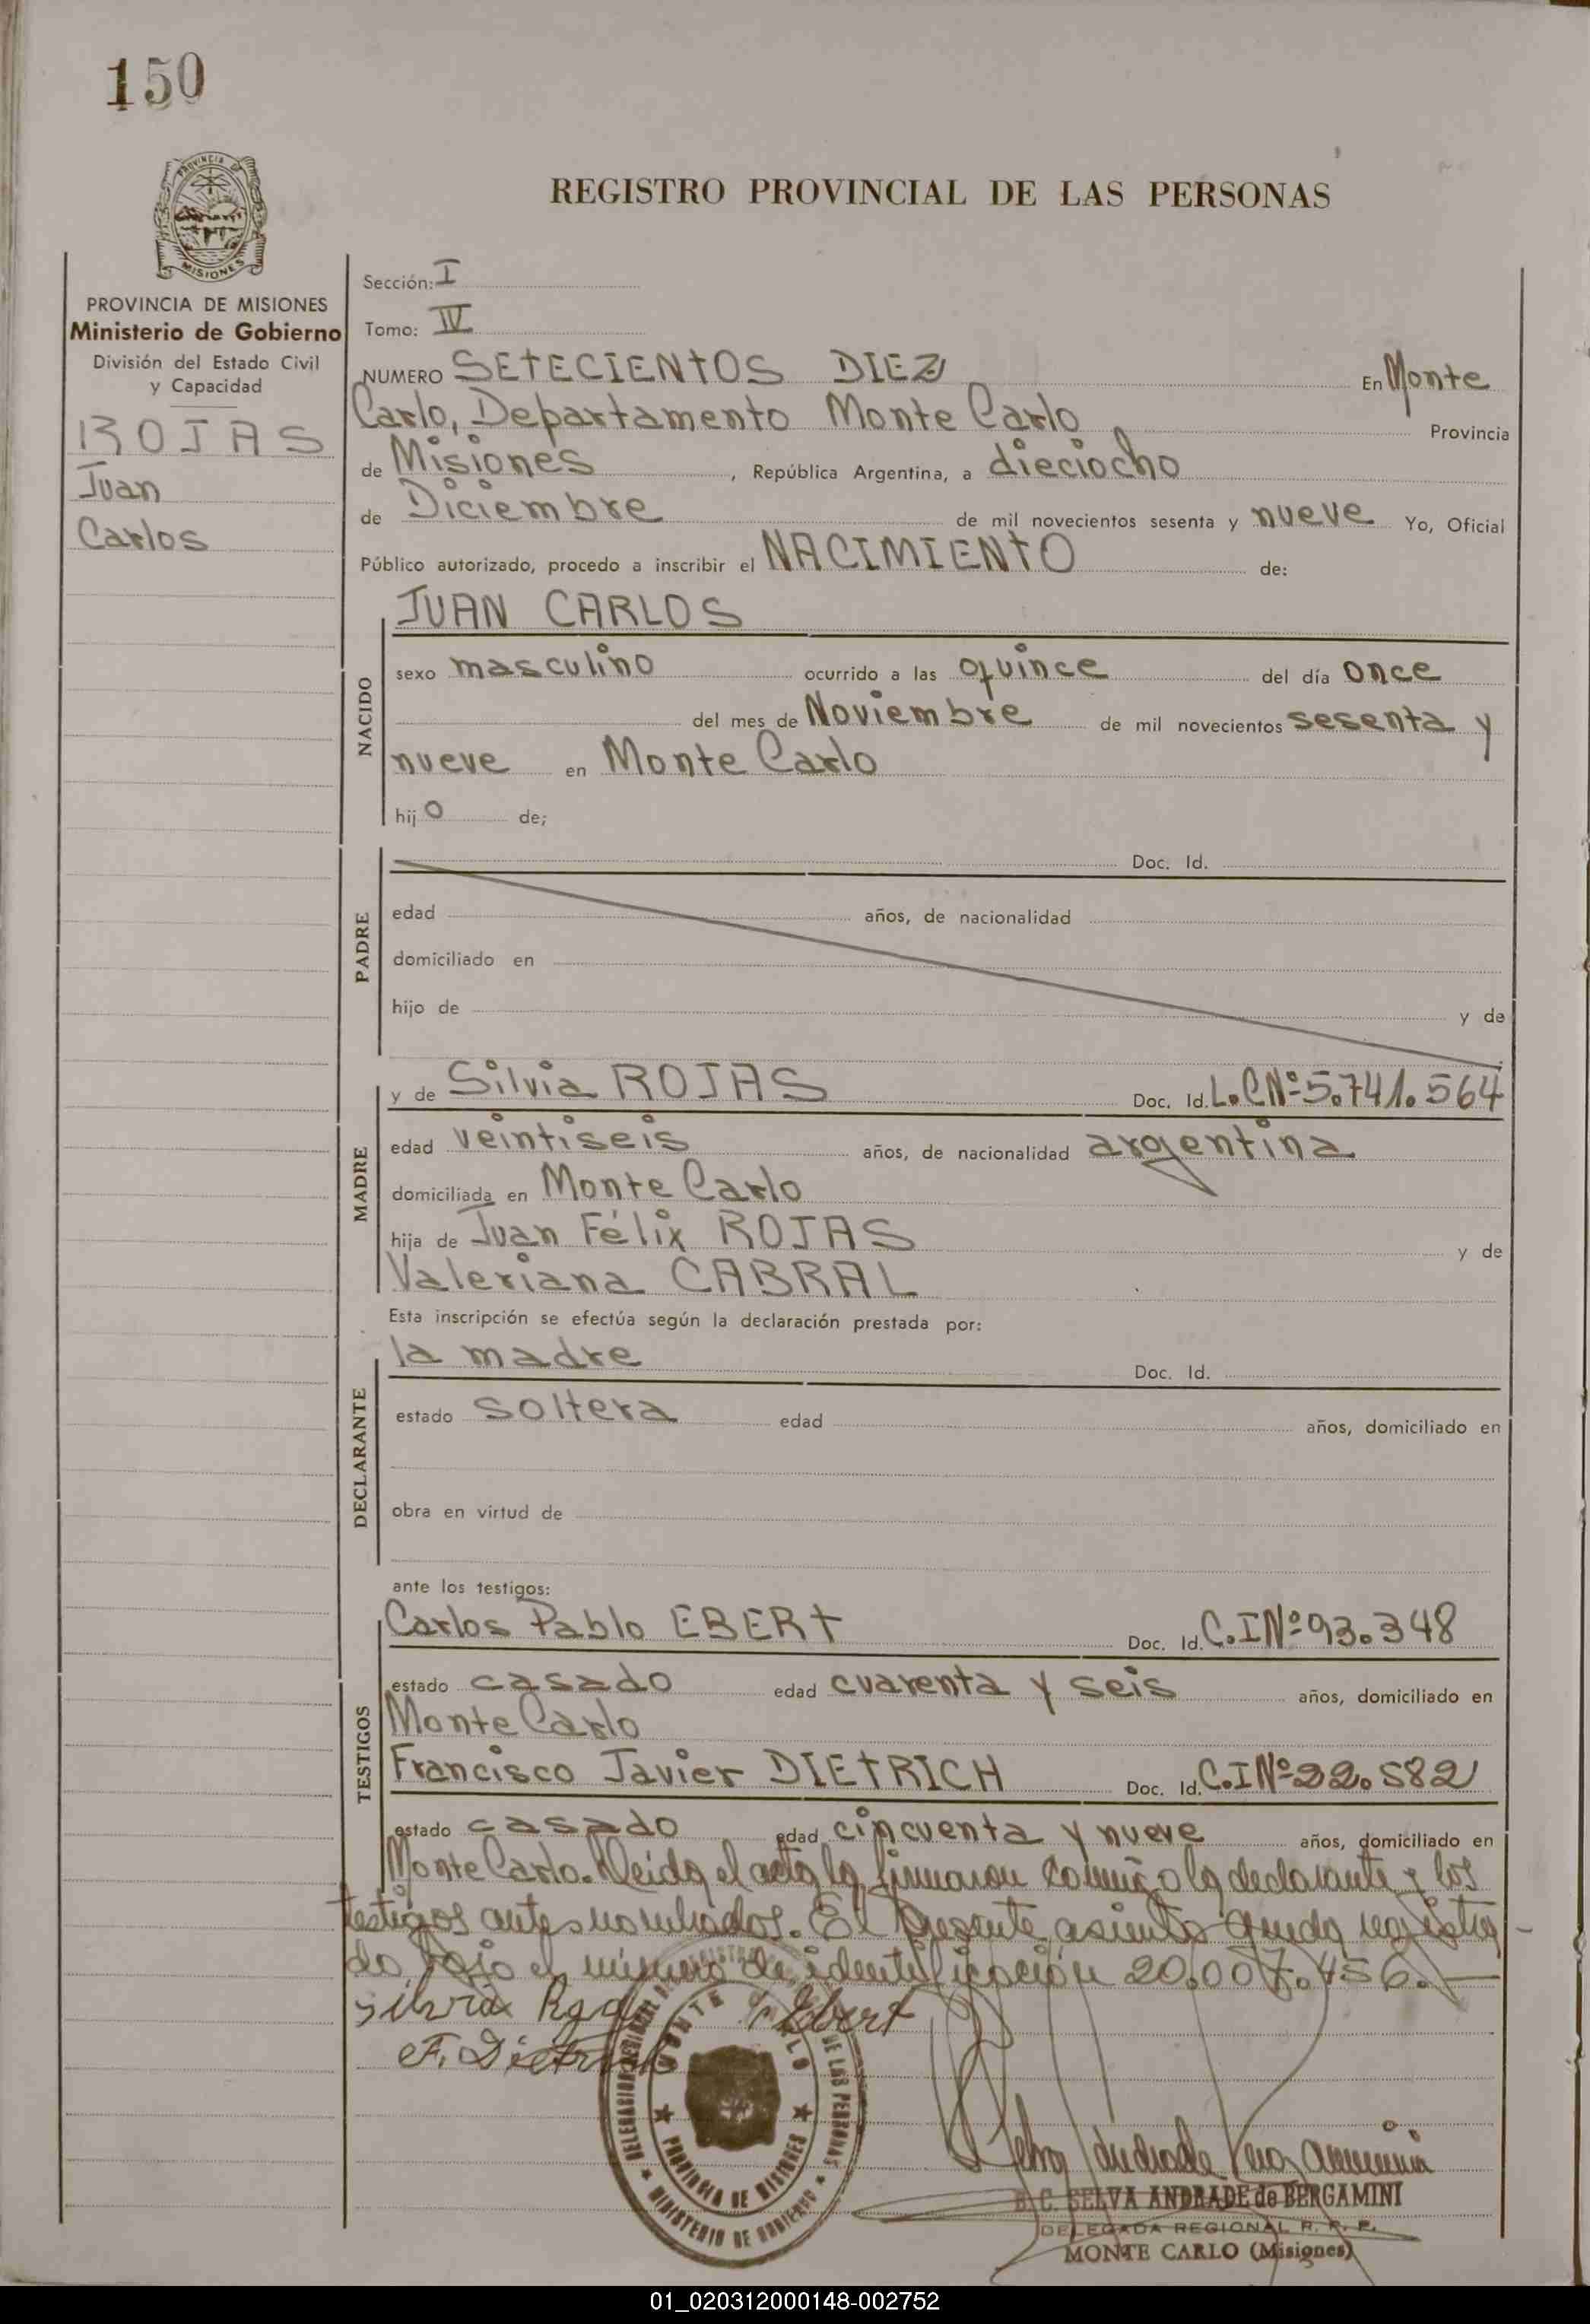 150
PROVINCIA DE
MISIONES
REGISTRO PROVINCIAL DE LAS PERSONAS
PROVINCIA DE MISIONES
Ministerio de Gobierno
División del Estado Civil
y Capacidad
ROJAS
Juan
Carlos
Sección: I
Tomo: IV
NUMERO SETECIENTOS DIEZ En Monte
Carlo, Departamento Monte Carlo Provincia
de Misiones, República Argentina, a dieciocho
de Diciembre de mil novecientos sesenta y nueve Yo, Oficial
Público autorizado, procedo a inscribir el NACIMIENTO de:
NACIDO
JUAN CARLOS
sexo masculino ocurrido a las quince del día once
del mes de Noviembre de mil novecientos sesenta y
nueve en Monte Carlo
hijo de;
PADRE
Doc. Id.
edad años, de nacionalidad
domiciliado en
hijo de y de
MADRE
y de Silvia ROJAS Doc. Id. L.C Nº 5.741.564
edad veintiseis años, de nacionalidad argentina
domiciliada en Monte Carlo
hija de Juan Félix ROJAS y de
Valeriana CABRAL
Esta inscripción se efectúa según la declaración prestada por:
DECLARANTE
la madre Doc. Id.
estado soltera edad años, domiciliado en
obra en virtud de
ante los testigos:
TESTIGOS
Carlos Pablo EBERT Doc. Id. C.I Nº 93.348
estado casado edad cuarenta y seis años, domiciliado en
Monte Carlo
Francisco Javier DIETRICH Doc. Id. C.I Nº 22.582
estado casado edad cincuenta y nueve años, domiciliado en
Monte Carlo. Leida el acta la firmaron conmigo la declarante y los
testigos antes nombrados. El presente asiento queda registra-
do bajo el número de identificación 20.007.456.-
Silvia Ebert
F. Dietrich
MONTE CARLO
DE LAS PERSONAS
PROVINCIA DE MISIONES
MINISTERIO DE GOBIERNO
SELVA ANDRADE de BERGAMINI
DELEGADA REGIONAL R. P. P.
MONTE CARLO (Misiones)
01_020312000148-002752